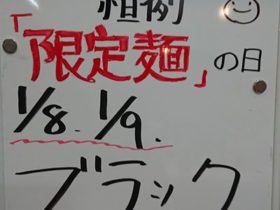 恒例
「限定麺」の日
1/8. 1/9.
ブラック